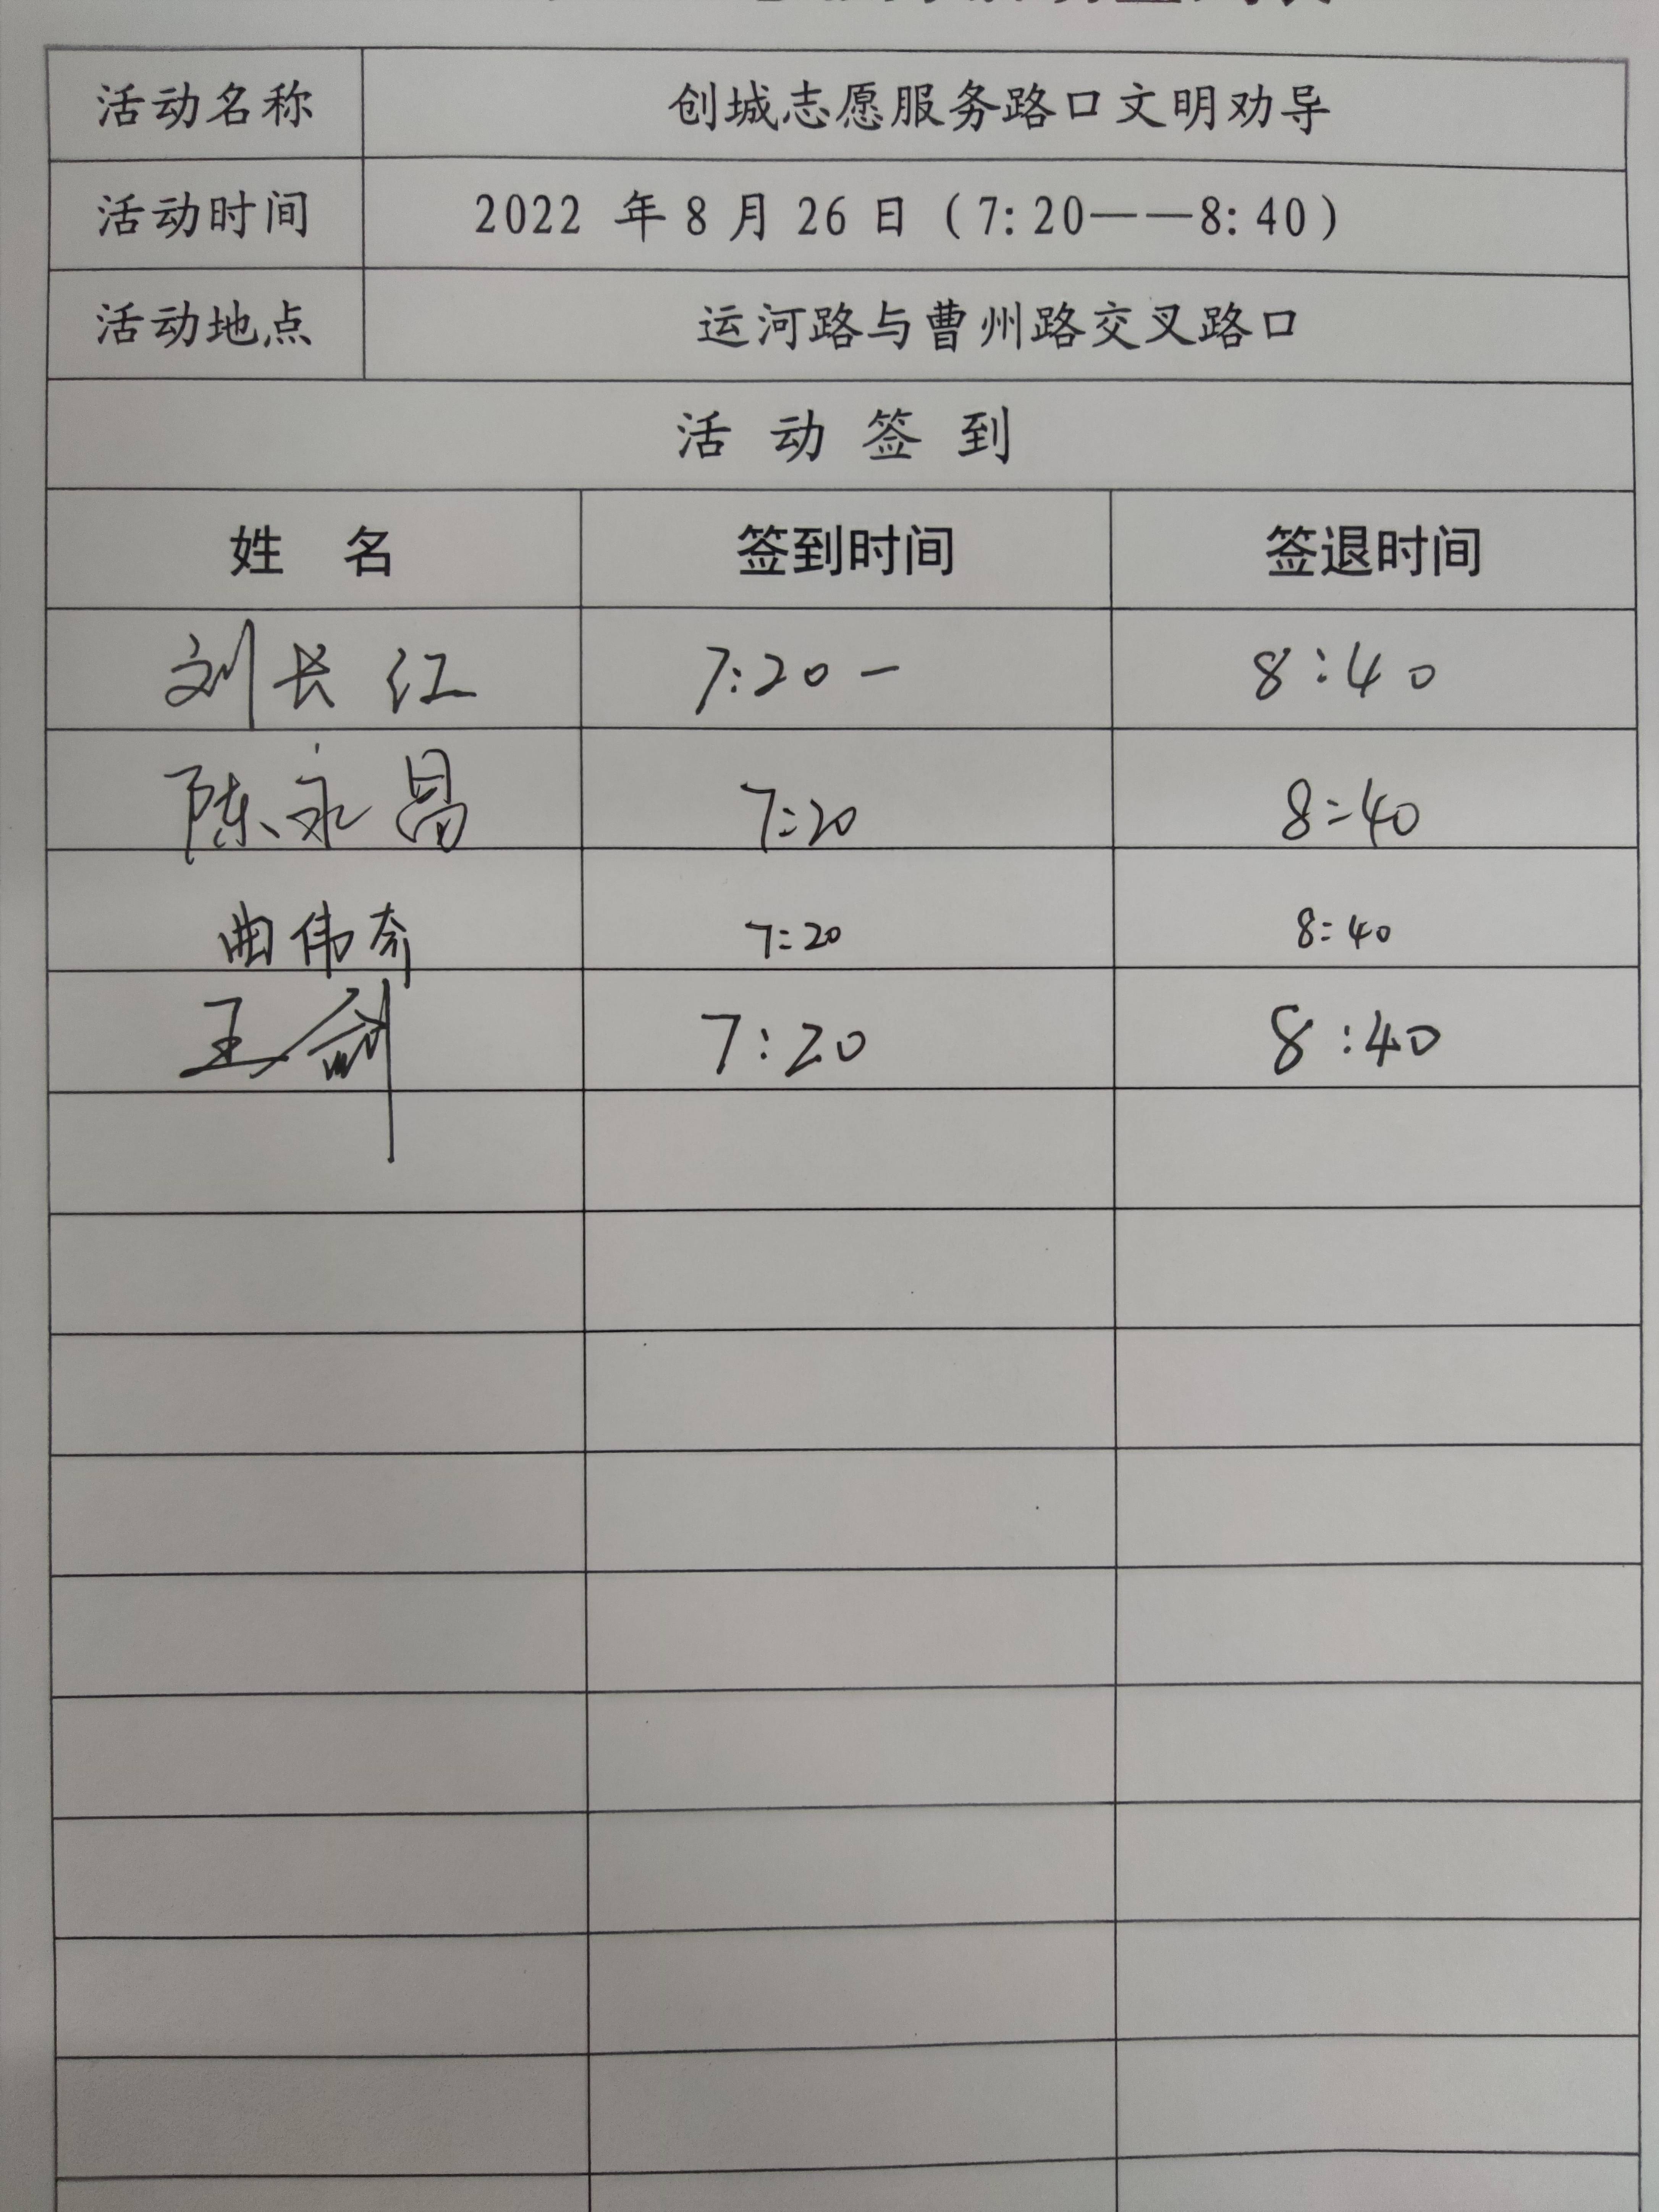 活动名称 创城志愿服务路口文明劝导
活动时间 2022 年 8 月 26 日（7:20——8:40）
活动地点 运河路与曹州路交叉路口
活 动 签 到
姓 名 签到时间 签退时间
刘长江 7:20 — 8:40
陈永昌 7:20 8:40
曲伟奇 7:20 8:40
王剑 7:20 8:40